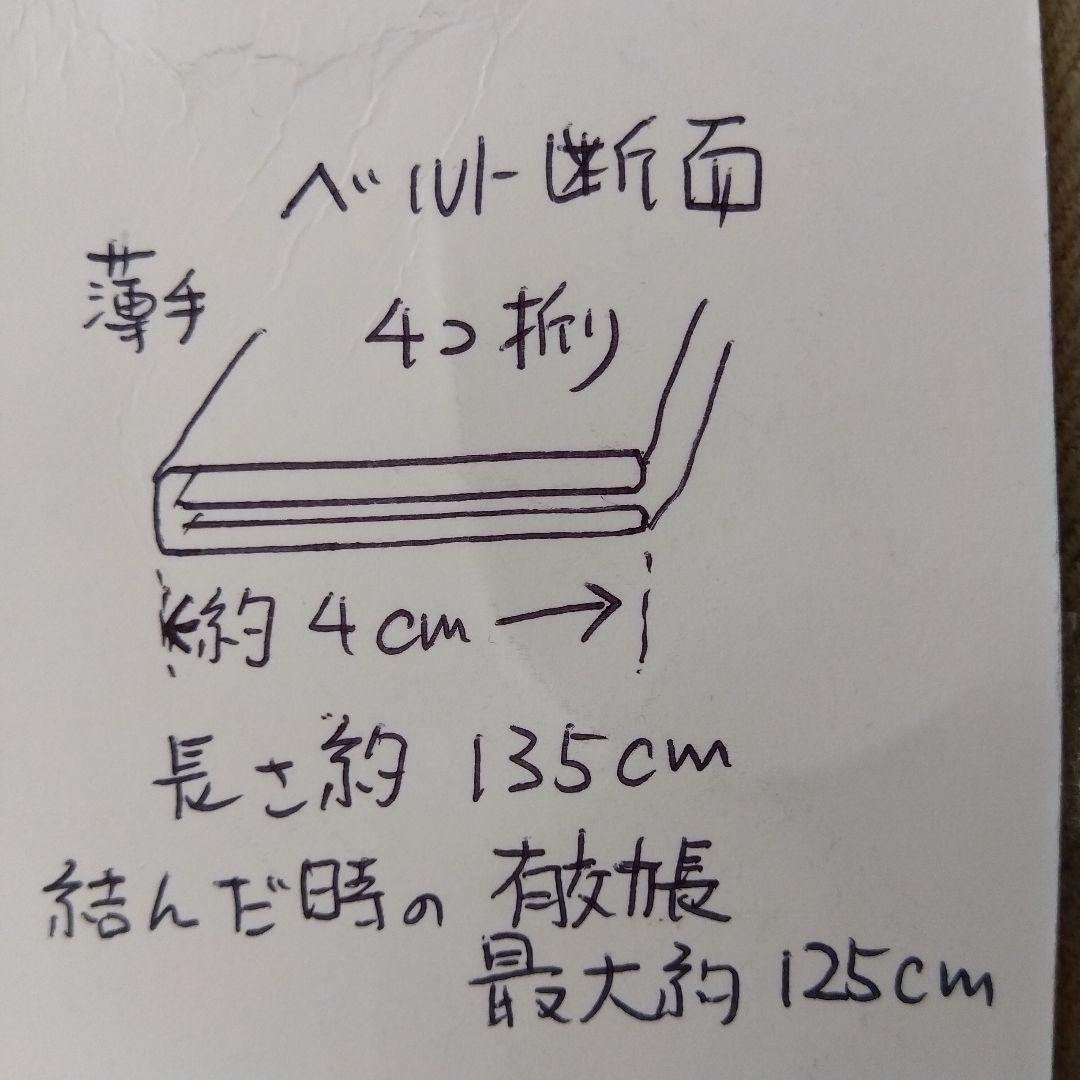 ベルト断面
薄手
4つ折り
約4cm
長さ約 135cm
結んだ時の 有効長
最大約 125cm